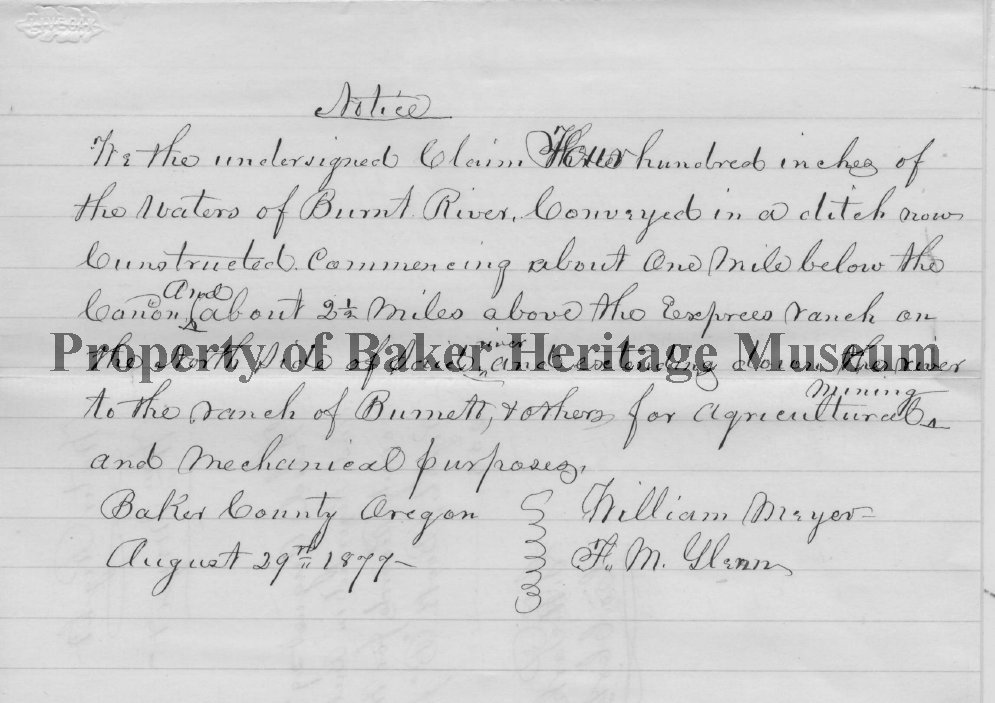 Notice
We the undersigned Claim Four hundred inches of
the Waters of Burnt River, Conveyed in a ditch now
Cunstructed. Commencing about One Mile below the
Cañon, And about 2½ Miles above the Exprees ranch on
the North Side of said river and extending down the river
Property of Baker Heritage Museum
to the ranch of Burnett, & others for Agricultural Mining
and Mechanical purposes,
Baker County Oregon
William Meyer
August 29th 1877
F. M. Glenn